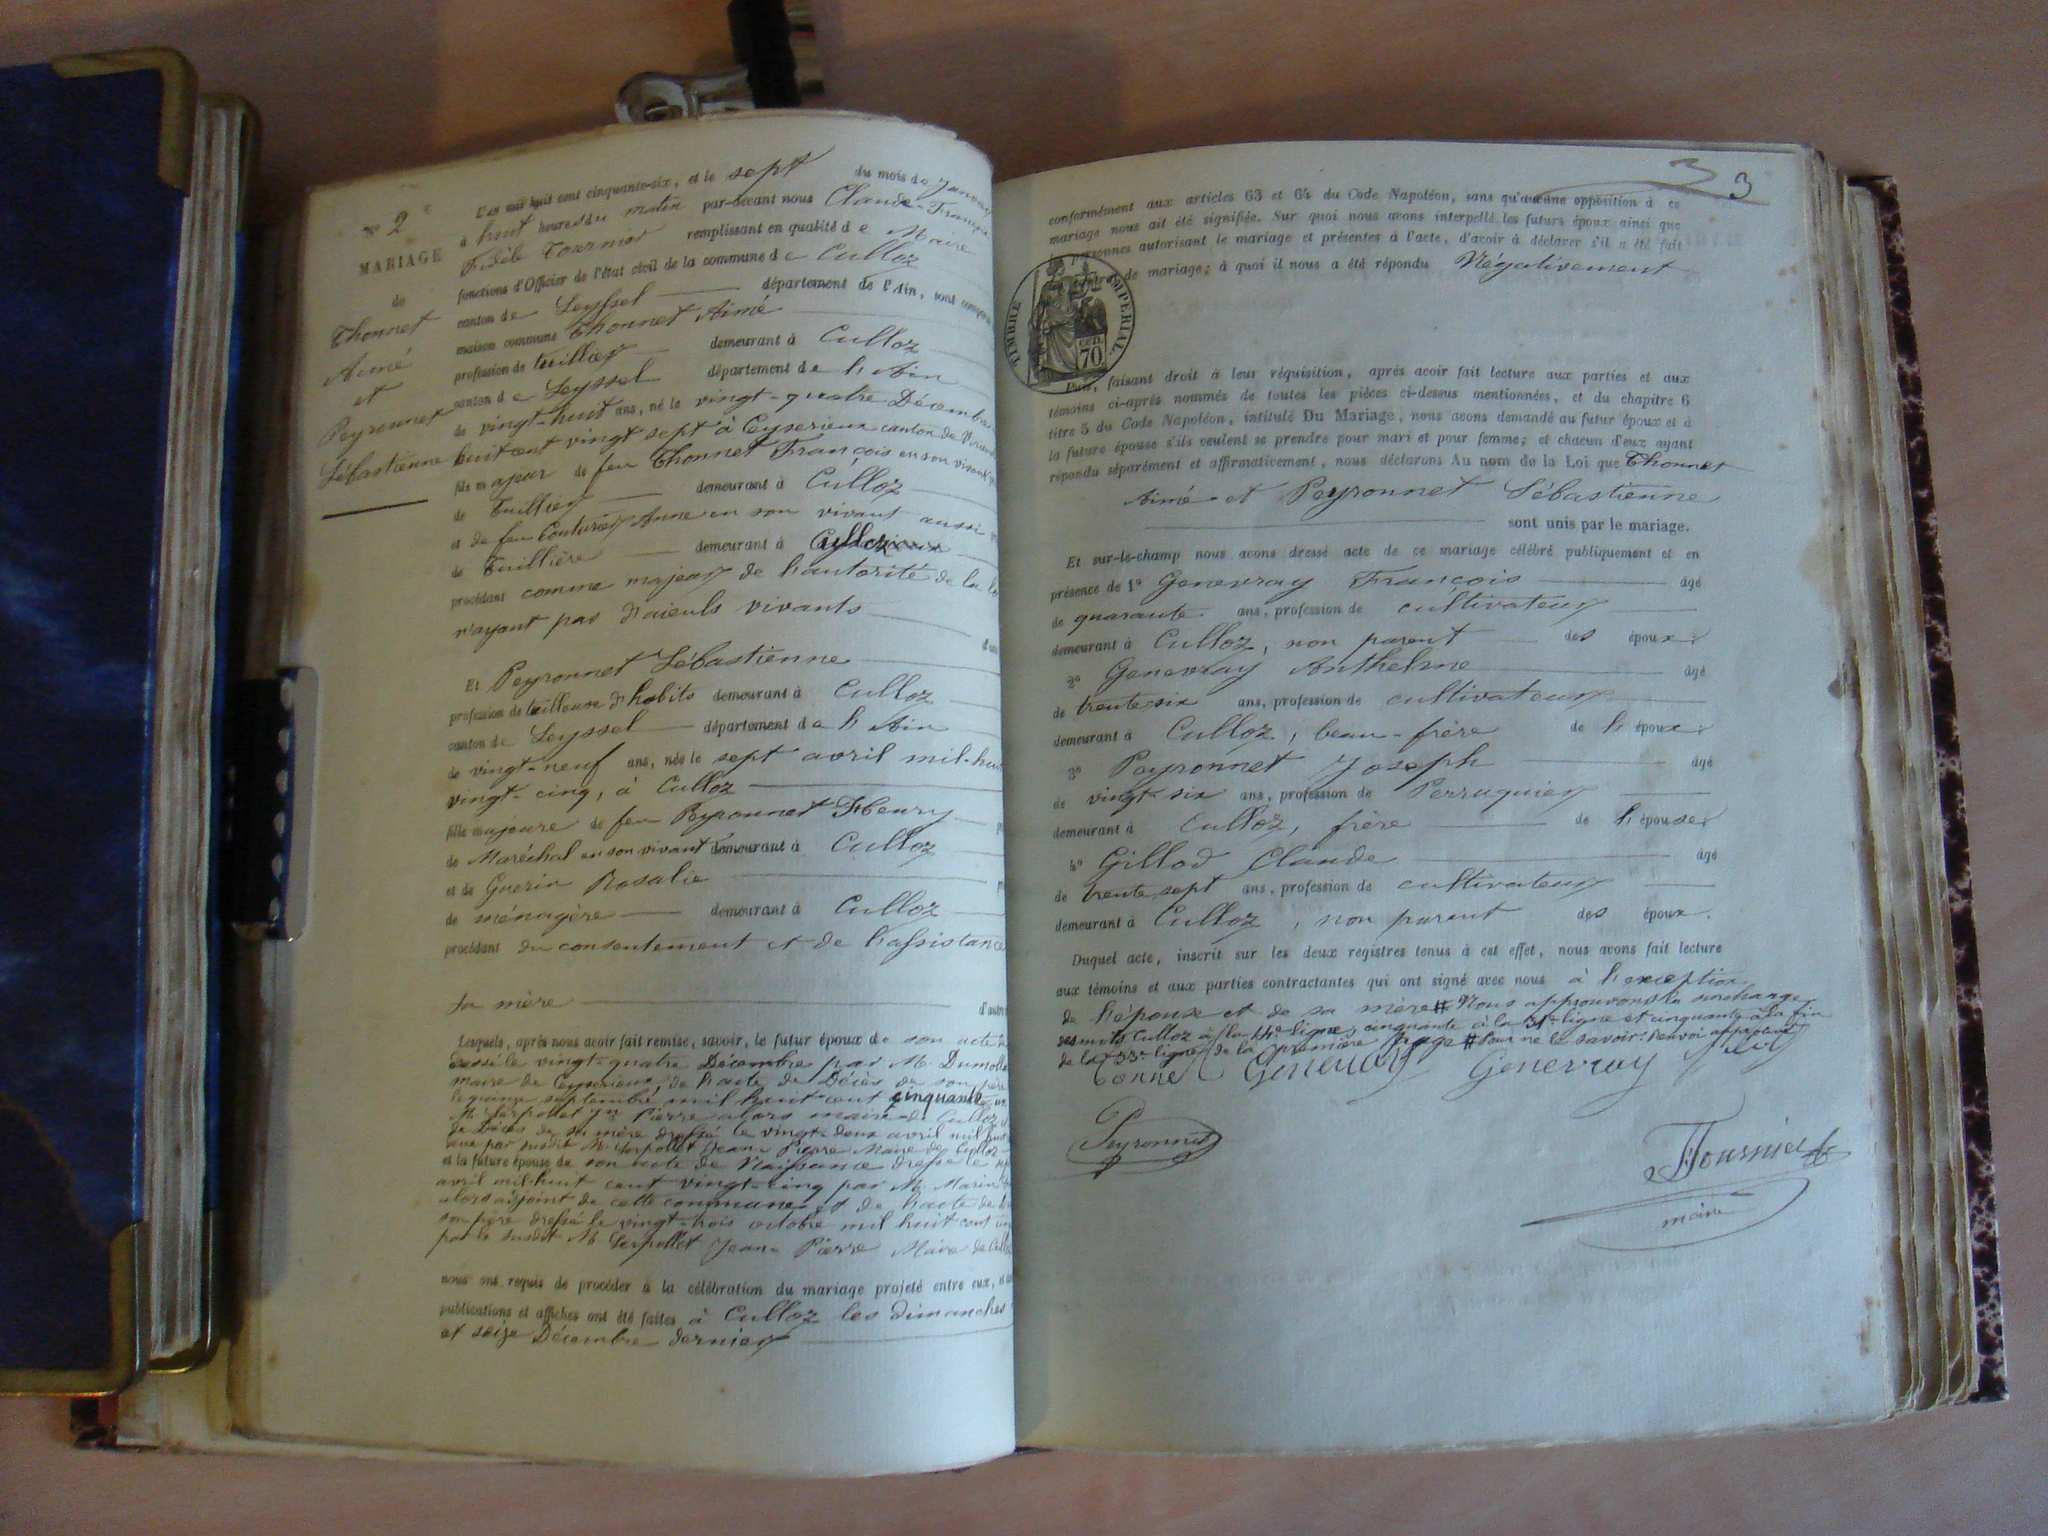 N° 2
MARIAGE
de
Thonnet
Aimé
et
Peyronnet
Sébastienne
L'an mil huit cent cinquante-six, et le sept du mois de Janvier
à huit heures du matin par-devant nous Claude-François
Fidèle Tournier remplissant en qualité de Maire
fonctions d'Officier de l'état civil de la commune de Culloz
canton de Seyssel département de l'Ain, sont comparus
maison commune Thonnet Aimé
profession de tuillier demeurant à Culloz
canton de Seyssel département de l'Ain
de vingt-huit ans, né le vingt-quatre Décembre
huit cent vingt sept à Ceyserieux canton de
fils majeur de feu Thonnet François en son vivant
de Tuillier demeurant à Culloz
et de feu Couturier Anne en son vivant aussi
de Tuillière demeurant à Culloz
procédant comme majeur de l'autorité de la loi
n'ayant pas d'aieuls vivants
Et Peyronnet Sébastienne
profession de tailleuse d'habits demeurant à Culloz
canton de Seyssel département de l'Ain
de vingt-neuf ans, née le sept avril mil-huit
vingt-cinq, à Culloz
fille majeure de feu Peyronnet Henry
de Maréchal en son vivant demeurant à Culloz
et de Guerin Rosalie
de ménagère demeurant à Culloz
procédant du consentement et de l'assistance
sa mère d'autre
Lesquels, après nous avoir fait remise, savoir, le futur époux de son acte de
dressé le vingt-quatre Décembre par M. Dumollard
maire de Ceyserieux, de l'acte de Décès de son père
le quinze septembre mil huit cent cinquante un
M. Serpollet Jn Pierre alors maire de Culloz
de Décès de sa mère dressé le vingt-deux avril mil huit
par susdit M. Serpollet Jean-Pierre Maire de Culloz
et la future épouse de son acte de Naissance dressé le sept
avril mil-huit cent vingt-cinq par M. Marin
alors adjoint de cette commune et de l'acte de
son père dressé le vingt-trois octobre mil huit cent
par le susdit M. Serpollet Jean-Pierre Maire de Culloz
nous ont requis de procéder à la célébration du mariage projeté entre eux,
publications et affiches ont été faites à Culloz les dimanches
et seize Décembre dernier
3
3
conformément aux articles 63 et 64 du Code Napoléon, sans qu'aucune opposition à ce
mariage nous ait été signifiée. Sur quoi nous avons interpellé les futurs époux ainsi que
personnes autorisant le mariage et présentes à l'acte, d'avoir à déclarer s'il a été fait
de mariage; à quoi il nous a été répondu Négativement
TIMBRE IMPERIAL
CENT.
70
Puis, faisant droit à leur réquisition, après avoir fait lecture aux parties et aux
témoins ci-après nommés de toutes les pièces ci-dessus mentionnées, et du chapitre 6
titre 5 du Code Napoléon, intitulé Du Mariage, nous avons demandé au futur époux et à
la future épouse s'ils veulent se prendre pour mari et pour femme; et chacun d'eux ayant
répondu séparément et affirmativement, nous déclarons Au nom de la Loi que Thonnet
Aimé et Peyronnet Sébastienne
sont unis par le mariage.
Et sur-le-champ nous avons dressé acte de ce mariage célébré publiquement et en
présence de 1° Genevray François âgé
de quarante ans, profession de cultivateur
demeurant à Culloz, non parent des époux.
2° Genevray Anthelme âgé
de trente-six ans, profession de cultivateur
demeurant à Culloz, beau-frère de l'époux.
3° Peyronnet Joseph âgé
de vingt-six ans, profession de Perruquier
demeurant à Culloz, frère de l'épouse.
4° Gillod Claude âgé
de trente-sept ans, profession de cultivateur
demeurant à Culloz, non parent des époux.
Duquel acte, inscrit sur les deux registres tenus à cet effet, nous avons fait lecture
aux témoins et aux parties contractantes qui ont signé avec nous à l'exception
de l'épouse et de sa mère # Nous approuvons la surcharge
des mots Culloz à la 14e ligne, cinquante à la 31e ligne et cinquante à la fin
de la 33e ligne de la première page # pour ne le savoir. Renvoi approuvé
Tonnet Genevray Genevray
Peyronnet
Tournier
maire